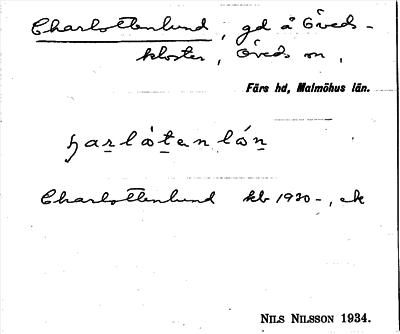 Charlottenlund, gd å Öveds-
kloster, Öveds sn,
Färs hd, Malmöhus län.
ʃarlòtenlón
Charlottenlund kb 1920-, ek
NILS NILSSON 1934.